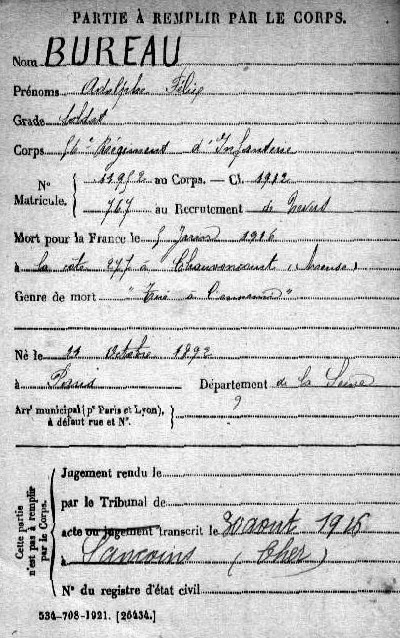 PARTIE À REMPLIR PAR LE CORPS.
Nom BUREAU
Prénoms Adolphe Félix
Grade Soldat
Corps Régiment d'Infanterie
N° Matricule. { au Corps. — Cl. 1912
767 au Recrutement de Nevers
Mort pour la France le 5 Janvier 1916
à la côte 277 à Chauvoncourt (Meuse)
Genre de mort "Tué à l'ennemi"
Né le Octobre 1892
à Paris Département de la Seine
Arr' municipal (p' Paris et Lyon), à défaut rue et N°. }
Cette partie n'est pas à remplir par le Corps.
Jugement rendu le
par le Tribunal de
acte ou jugement transcrit le 30 août 1916
à Sancoins (Cher)
N° du registre d'état civil
534-708-1921. [26434.]